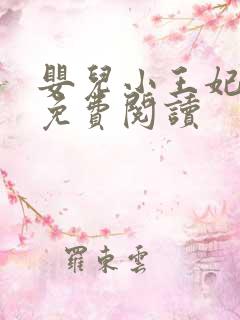 嬰兒小王妃
免費閱讀
羅東雲